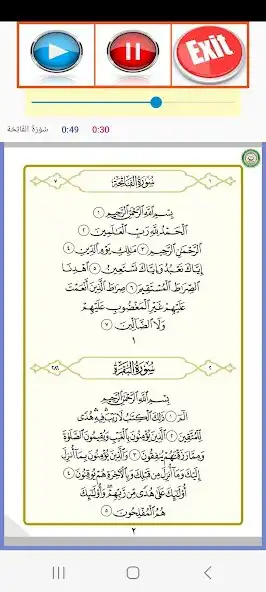 Exit
سُورَةُ الفَاتِحَة 0:49 0:30
٧ سُورَةُ الفَاتِحَةِ ١
بِسْمِ اللَّهِ الرَّحْمَٰنِ الرَّحِيمِ ١
الْحَمْدُ لِلَّهِ رَبِّ الْعَالَمِينَ ٢
الرَّحْمَٰنِ الرَّحِيمِ ٣ مَالِكِ يَوْمِ الدِّينِ ٤
إِيَّاكَ نَعْبُدُ وَإِيَّاكَ نَسْتَعِينُ ٥ اهْدِنَا
الصِّرَاطَ الْمُسْتَقِيمَ ٦ صِرَاطَ الَّذِينَ أَنْعَمْتَ
عَلَيْهِمْ غَيْرِ الْمَغْضُوبِ عَلَيْهِمْ
وَلَا الضَّالِّينَ ٧
١
٢٨٦ سُورَةُ البَقَرَةِ ٢
بِسْمِ اللَّهِ الرَّحْمَٰنِ الرَّحِيمِ
الٓمٓ ١ ذَٰلِكَ الْكِتَابُ لَا رَيْبَ فِيهِ هُدًى
لِّلْمُتَّقِينَ ٢ الَّذِينَ يُؤْمِنُونَ بِالْغَيْبِ وَيُقِيمُونَ الصَّلَاةَ
وَمِمَّا رَزَقْنَاهُمْ يُنفِقُونَ ٣ وَالَّذِينَ يُؤْمِنُونَ بِمَا أُنزِلَ
إِلَيْكَ وَمَا أُنزِلَ مِن قَبْلِكَ وَبِالْآخِرَةِ هُمْ يُوقِنُونَ ٤
أُولَٰئِكَ عَلَىٰ هُدًى مِّن رَّبِّهِمْ وَأُولَٰئِكَ
هُمُ الْمُفْلِحُونَ ٥
٢